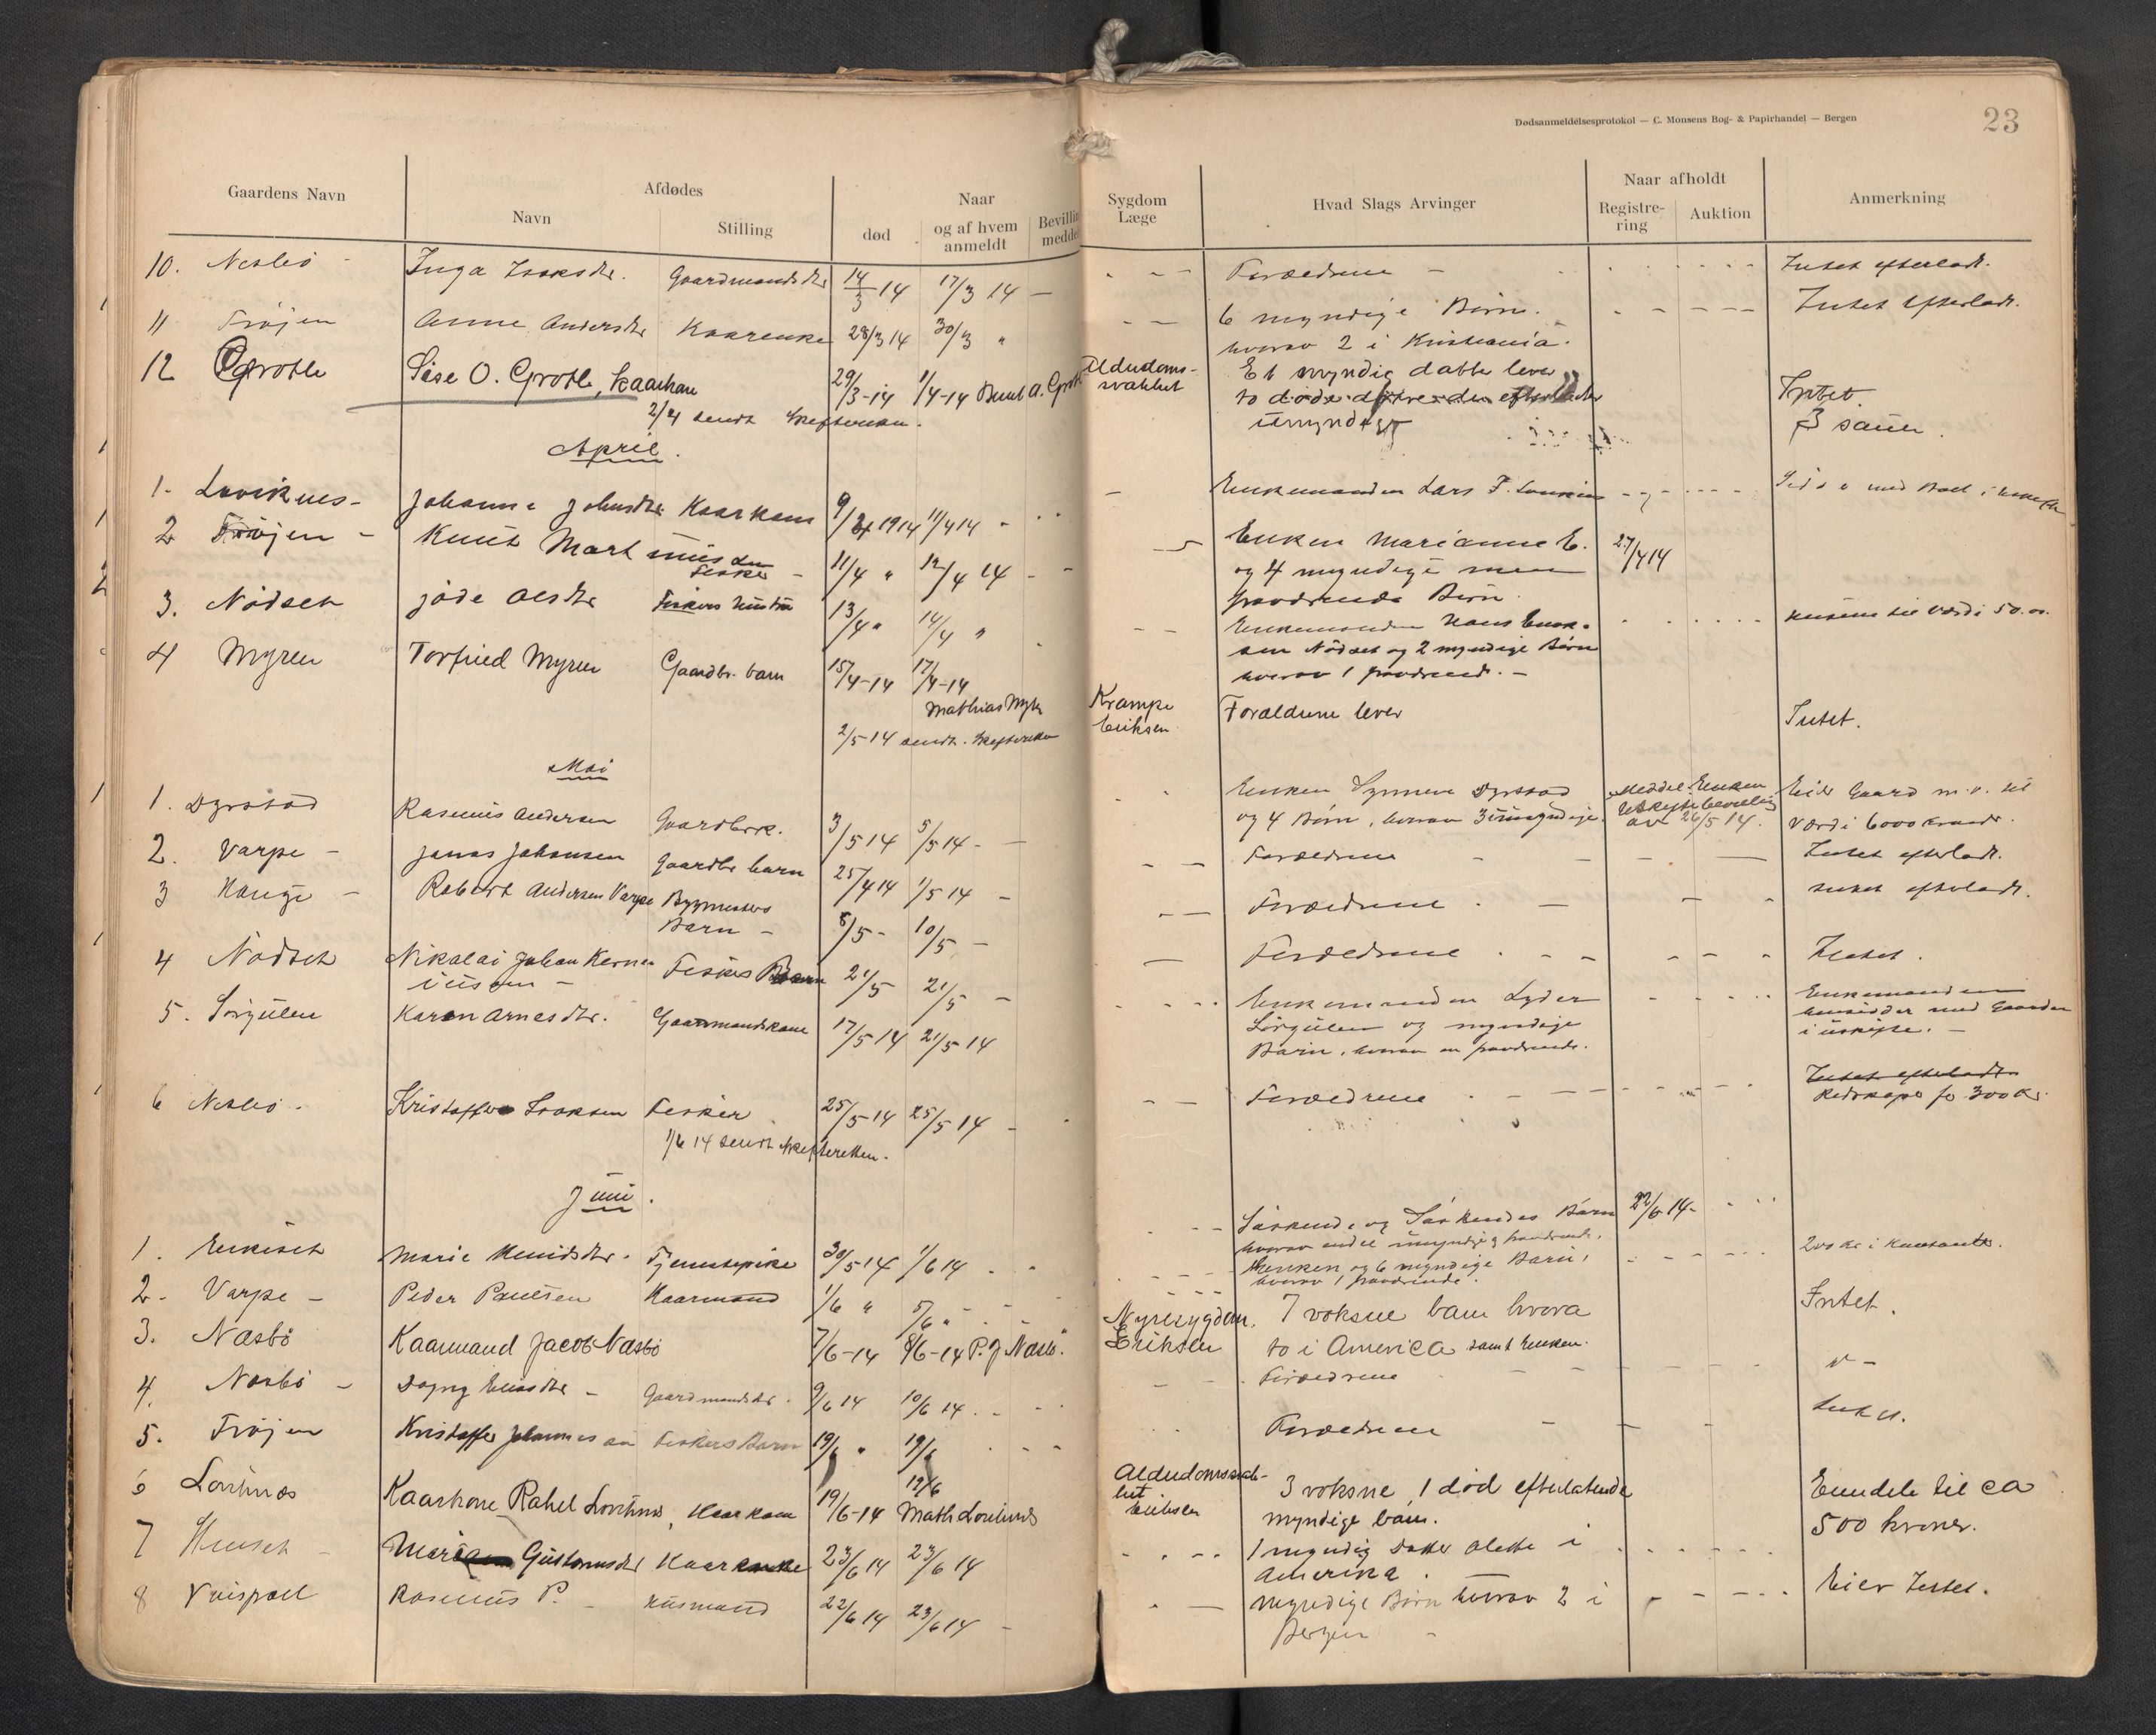 Dødsanmeldelsesprotokol — C. Monsens Bog- & Papirhandel — Bergen
23
Gaardens Navn
Afdødes
Navn
Stilling
Naar
død
og af hvem anmeldt
Bevillin
medde
Sygdom
Læge
Hvad Slags Arvinger
Naar afholdt
Registre-
ring
Auktion
Anmerkning
10. Nesbö - Inga Isaksdtr. Gaardmandsdtr 14/3 14 17/3 14 — Forældrene - Intet efterladt.
11 Fröjen Anne Andersdtr Kaarenke 28/3 14 30/3 " 6 myndige Börn. Intet efterladt.
hvorav 2 i Kristiania.
12 Grotle Sise O. Grotle, kaarkone 29/3-14 1/4-14 A. Grotle Alderdoms- Et myndig datter lever Intet
svakhet to döde döttre der efterlader 3 sauer.
umyndige
2/4 sendt Skifteretten.
April.
1. Loviknes - Johanne Johnsdtr Kaarkone 9/4 1914 11/4 14 Enkemanden Lars F.
2 Fröjen - Knut Martinus sen Fisker - 11/4 " 12/4 14 Enken Marianne E. 27/4 14
og 4 myndige men
fraværende Börn.
3. Nödset Jöde Olsdtr Fiskers hustru 13/4 " 14/4 " Enkemanden Hans Enok-
sen Nödset og 2 myndige Börn
hvorav 1 fraværend. - Husene til værdi 50.00.
4 Myren Torfried Myren Gaardbr. barn 15/4-14 17/4-14 Krampe Foraldrene lever Intet.
Mathias Myren Eriksen
2/5-14 sendt. Skifteretten
Mai
1. Dyrstad Rasmus Andersen Gaardbrk. 3/5 14 5/5 14 - Enken Synneve Dyrstad Meddel. Enken Eier Gaard m.v. til
og 4 Börn, hvorav 3 umyndige. Uskiftebevilling av 26/5 14. Værdi 6000 kroner.
2. Varpe - Jonas Johansen Gaardbr barn 25/4 14 1/5 14 - Forældrene Intet efterladt.
3 Hauge - Robert Andersen Varpe Bygmesters Barn - 8/5 - 10/5 - Forældrene Intet efterladt.
4 Nödset Nikolai Johan Kornelius sen - Fiskers Barn 21/5 21/5 - Forældrene Intet.
5. Sörgulen Karen Arnesdtr. Gaarmandskone 17/5 14 21/5 14 Enkemanden Lyder Enkemanden
Sörgulen og myndige hensidder med Gaarden
Barn, hvorav en fraværende. i uskifte. -
6 Nesbö. Kristoffer Isaksen Fisker 25/5 14 25/5 14 - Forældrene Intet efterladt
Redskaper for 300 Kr.
1/6 14 sendt Skifteretten.
Juni.
1. Marie Tjenestepike 30/5 14 1/6 14 Söskende og Söskendes Barn 22/6 14 -
hvorav endel umyndige og fraværende. 200 kr i Kontanter.
2. Varpe - Peder Paulsen Kaarmand 1/6 " 5/6 " Enken og 6 myndige Barn,
hvorav 1 fraværende.
3. Næsbö Kaarmand Jacob Næsbö 7/6-14 8/6-14 P. J Næsbö. Nyresygdom. 7 voksne barn hvora Intet.
Eriksen to i America samt Enken.
4. Nesbö - Dagny Eliasdtr - Gaardmandsdtr. 9/6 14 10/6 14 Forældrene " -
5. Fröjen Kristoffer Johannessen Fiskers Barn 19/6 " 19/6 Forældrene Intet.
6 Loviknæs Kaarkone Rahel Loviknæs, Kaarkone 19/6-14 19/6 Math Loviknæs Alderdomssvak- 3 voksne, 1 död efterlatende Eiendele til ca
het Eriksen myndige barn. 500 kroner.
7 Gustavusdtr Kaarenke 23/6 14 23/6 14 1 myndig Datter Olette i
Amerika.
8 Rasmus P. - Husmand 22/6 14 23/6 14 - Myndige Börn hvorav 2 i Eier Intet.
Bergen -